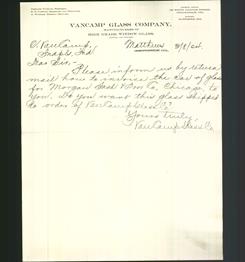 VANCAMP GLASS COMPANY,
MANUFACTURERS OF
HIGH GRADE WINDOW GLASS.
Matthews 3/8/04.
C. VanCamp,
Ind'pls, Ind
Dear Sir,-
Please inform us by return
mail how to invoice the car of glass
for Morgan Sash & Door Co, Chicago, to
you. Do you want this glass shipped
to order of VanCamp Glass Co?
Yours truly
VanCamp Glass Co